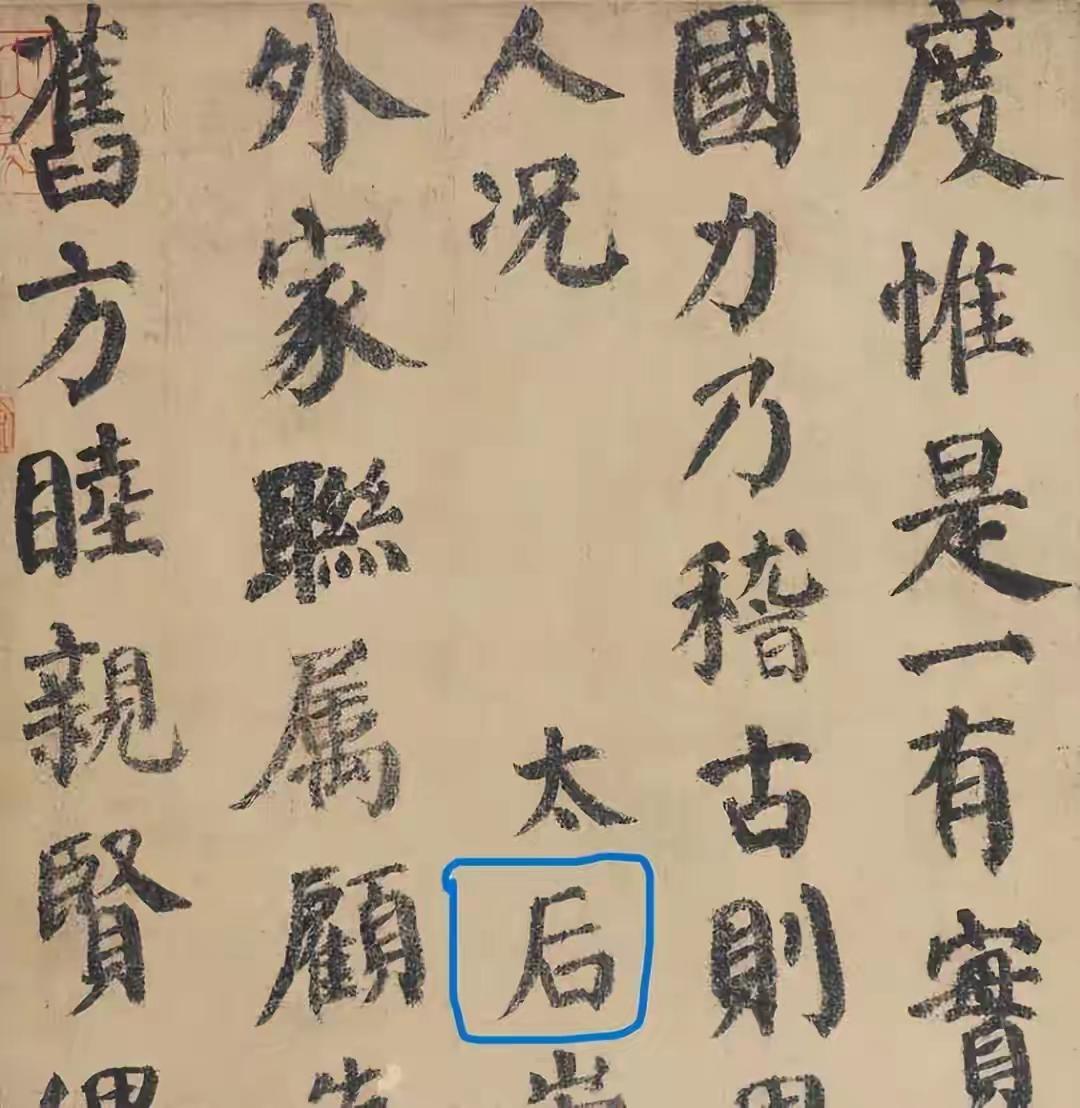 度惟是一有實
國力乃稽古則
人況太后
外家聯属顧
舊方睦親賢